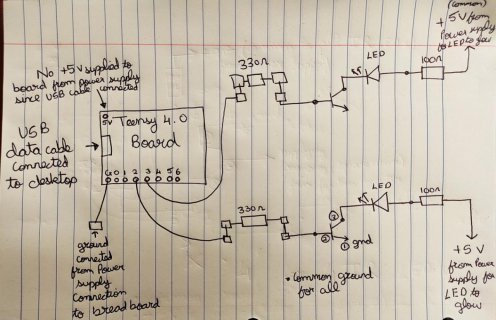 (common)
+5V from
Power supply
to LED to you
330Ω
LED
100Ω
No +5V supplied to
board from power supply
since USB cable connected
5V
Teensy 4.0
Board
USB
data cable
connected
to desktop
G 0 1 2 3 4 5 6
330Ω
LED
100Ω
③
②
① gnd
ground
connected
from Power
supply
Connection
to bread board
• Common ground
for all
+5 V
from Power
supply for
LED to
glow